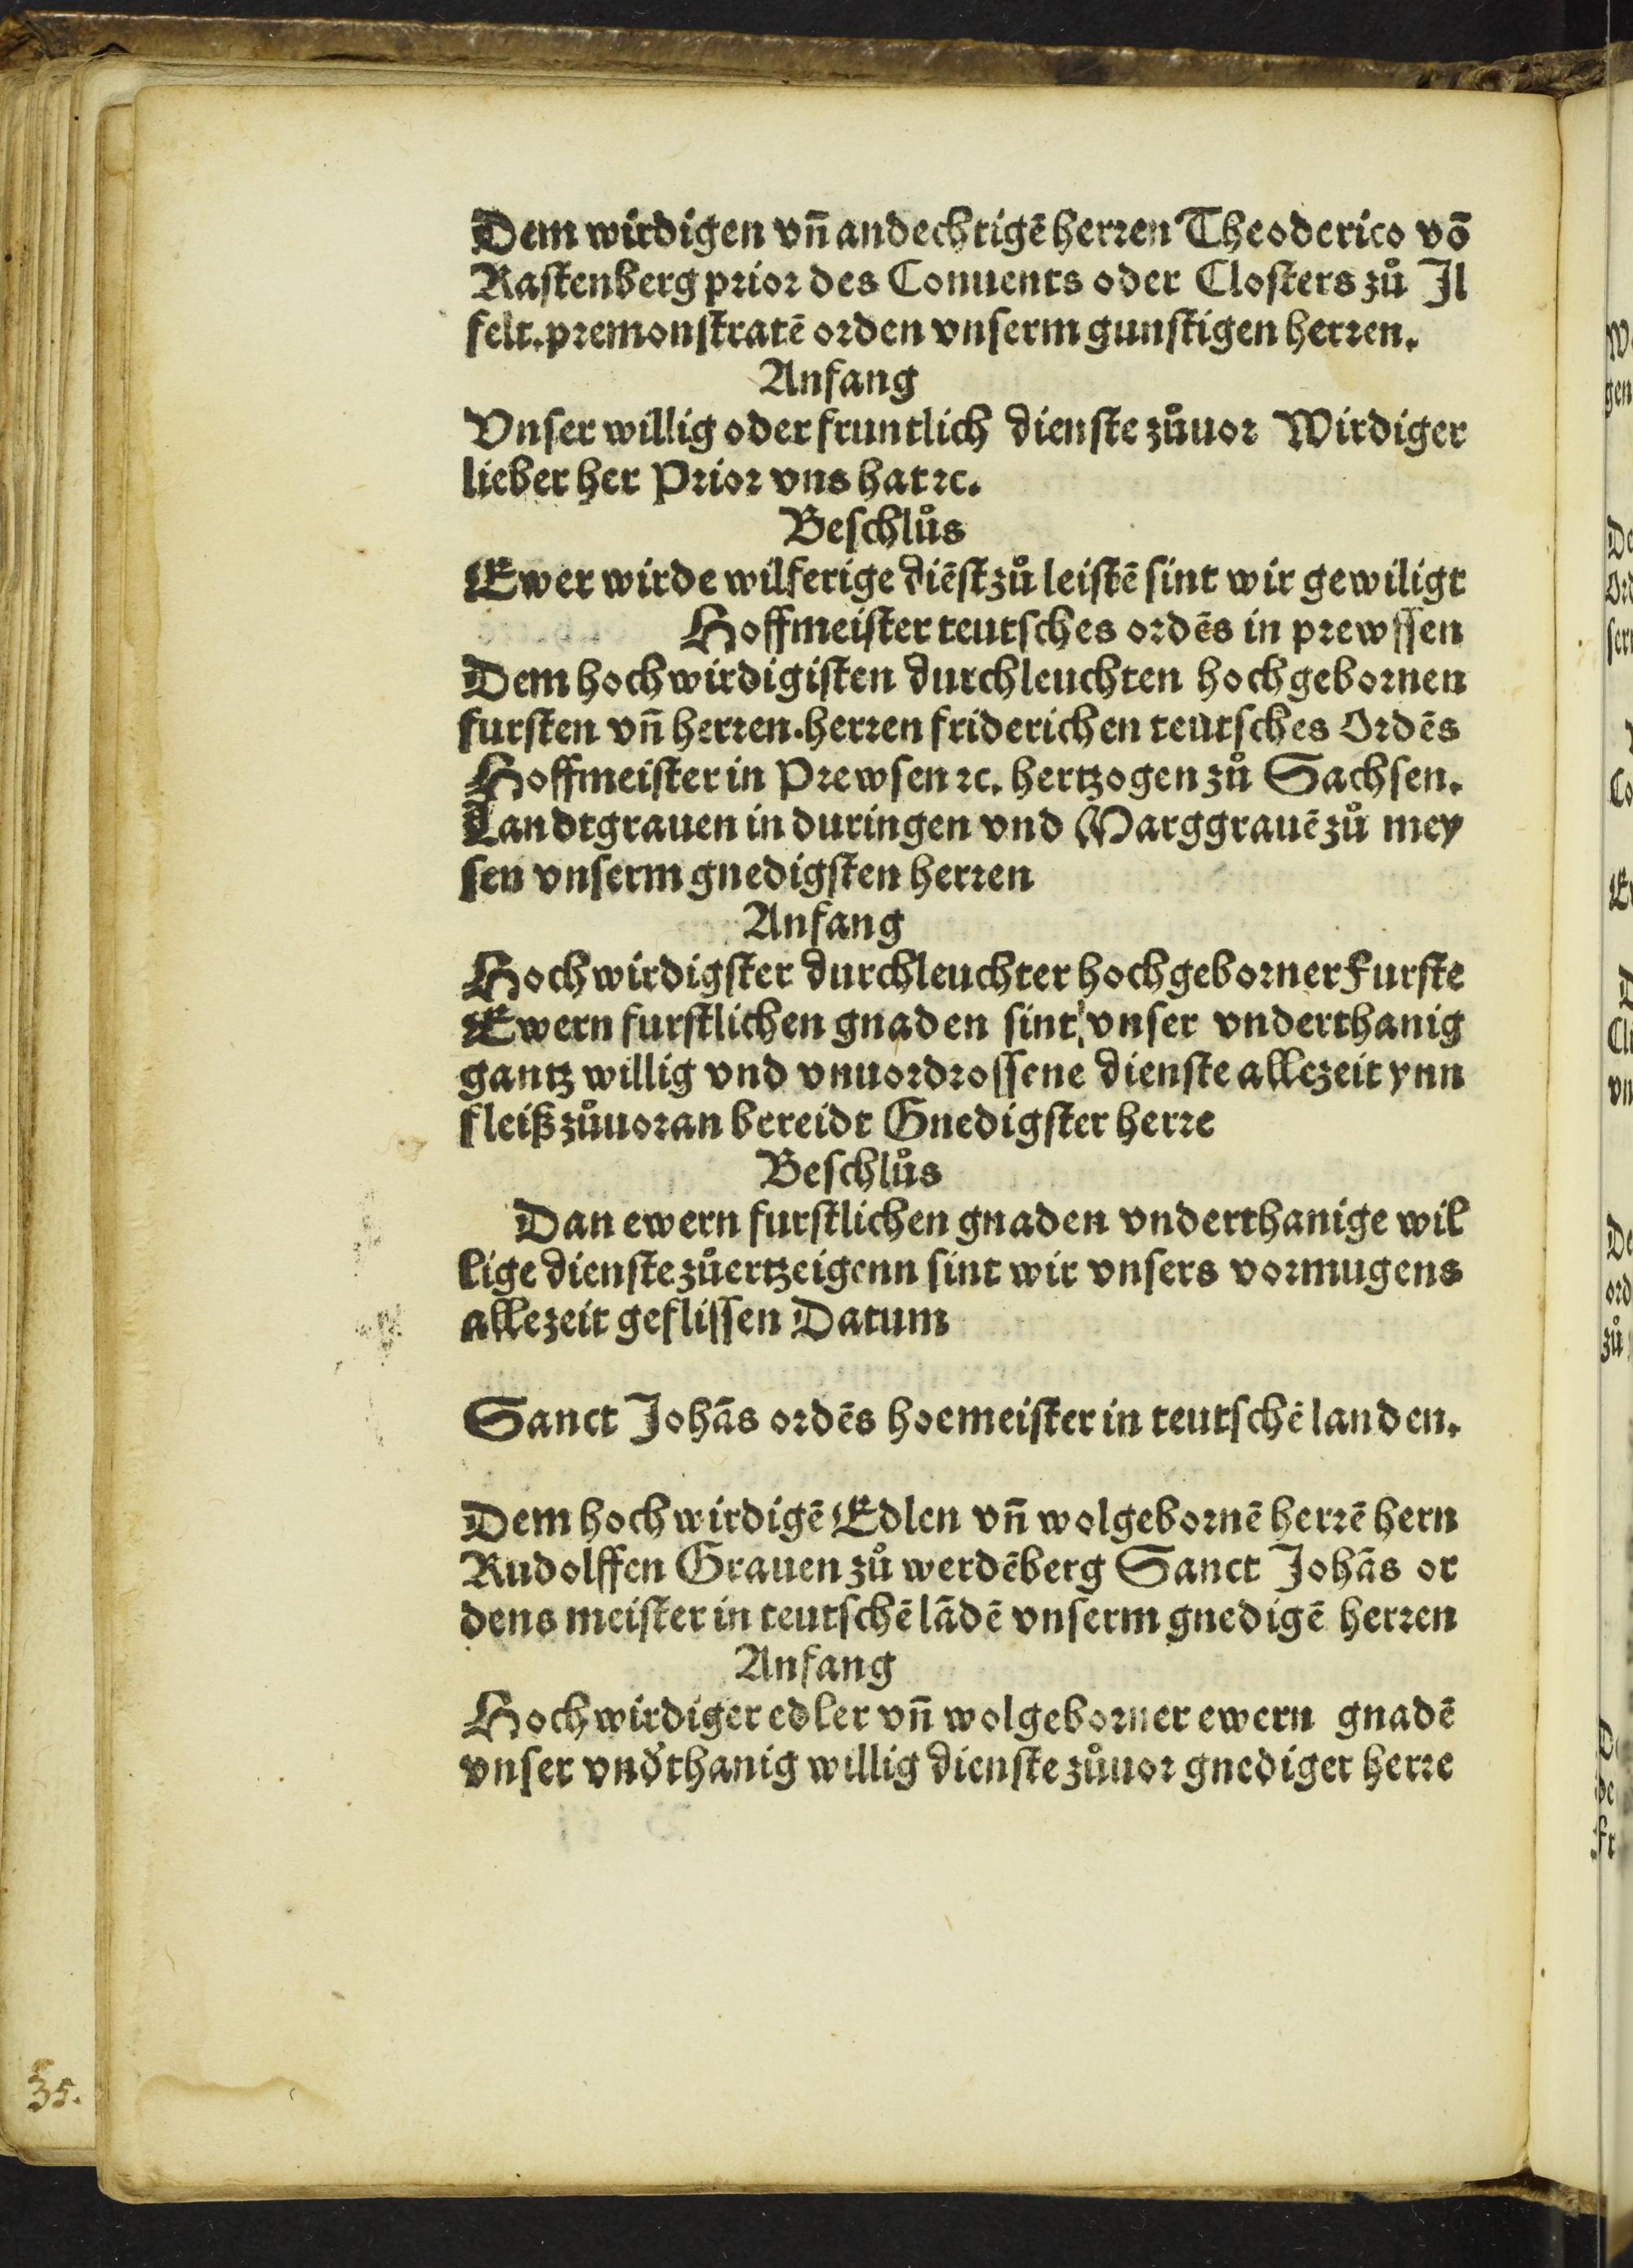 Dem wirdigen vñ andechtigē herren Theoderico vō
Rastenberg prior des Conuents oder Closters zů Jl
felt. premonstratē orden vnserm gunstigen herren.
Anfang
Vnser willig oder fruntlich dienste zůuor Wirdiger
lieber her Prior vns hat ꝛc.
Beschlůs
Ewer wirde wilferige diēst zů leistē sint wir gewiligt
Hoffmeister teutsches ordēs in prewssen
Dem hochwirdigisten durchleuchten hochgebornen
fursten vñ herren. herren friderichen teutsches Ordēs
Hoffmeister in Prewsen ꝛc. hertzogen zů Sachsen.
Landtgrauen in duringen vnd Marggrauē zů mey
sen vnserm gnedigsten herren
Anfang
Hochwirdigster durchleuchter hochgeborner Furste
Ewern furstlichen gnaden sint vnser vnderthanig
gantz willig vnd vnuordrossene dienste allezeit ynn
fleiß zůuoran bereidt Gnedigster herre
Beschlůs
Dan ewern furstlichen gnaden vnderthanige wil
lige dienste zůertzeigenn sint wir vnsers vormugens
allezeit geflissen Datum
Sanct Johās ordēs hoemeister in teutschē landen.
Dem hochwirdigē Edlen vñ wolgebornē herrē hern
Rudolffen Grauen zů werdēberg Sanct Johās or
dens meister in teutschē lādē vnserm gnedigē herren
Anfang
Hochwirdiger edler vñ wolgeborner ewern gnadē
vnser vnd̛thanig willig dienste zůuor gnediger herre
35.